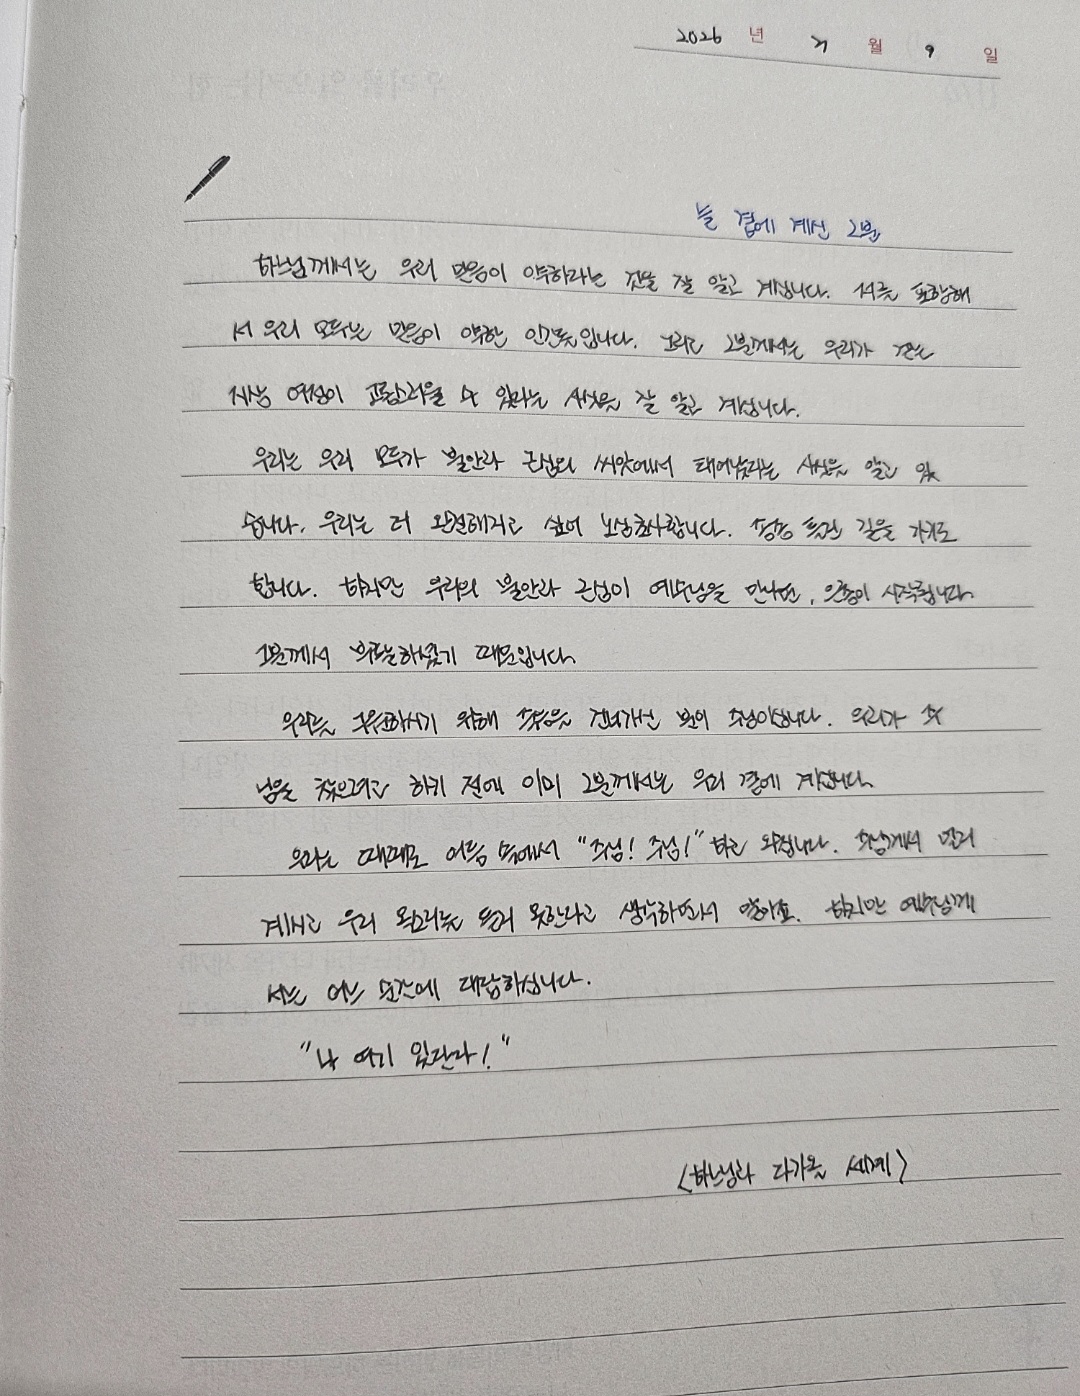 2026 년 7 월 9 일
늘 곁에 계신 그분
하느님께서는 우리 믿음이 약하라는 것을 잘 알고 계십니다. 저를 포함해
서 우리 모두는 믿음이 약한 인간들입니다. 그리고 그분께서는 우리가 걷는
세상 여정이 고통스러울 수 있다는 사실을 잘 알고 계십니다.
우리는 우리 모두가 불안과 근심의 씨앗에서 태어났다는 사실을 알고 있
습니다. 우리는 더 완전해지고 싶어 노심초사합니다. 종종 틀린 길을 가기도
합니다. 하지만 우리의 불안과 근심이 예수님을 만나면, 은총이 시작됩니다.
그분께서 부르는하셨기 때문입니다.
우리를 구원하시기 위해 죽음을 건너가신 분이 주님이십니다. 우리가 주
님을 찾으려고 하기 전에 이미 그분께서는 우리 곁에 계십니다.
우리는 때때로 어둠 속에서 "주님! 주님!" 하고 외칩니다. 주님께서 멀리
계시고 우리 목소리를 듣지 못한다고 생각하면서 말이죠. 하지만 예수님께
서는 어느 순간에 대답하십니다.
"나 여기 있단다!"
〈하느님과 다가올 세계〉